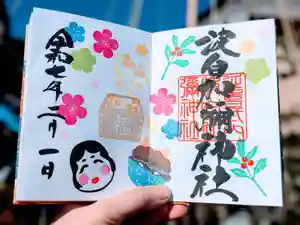 波自加彌神社
福
令和七年二月一日